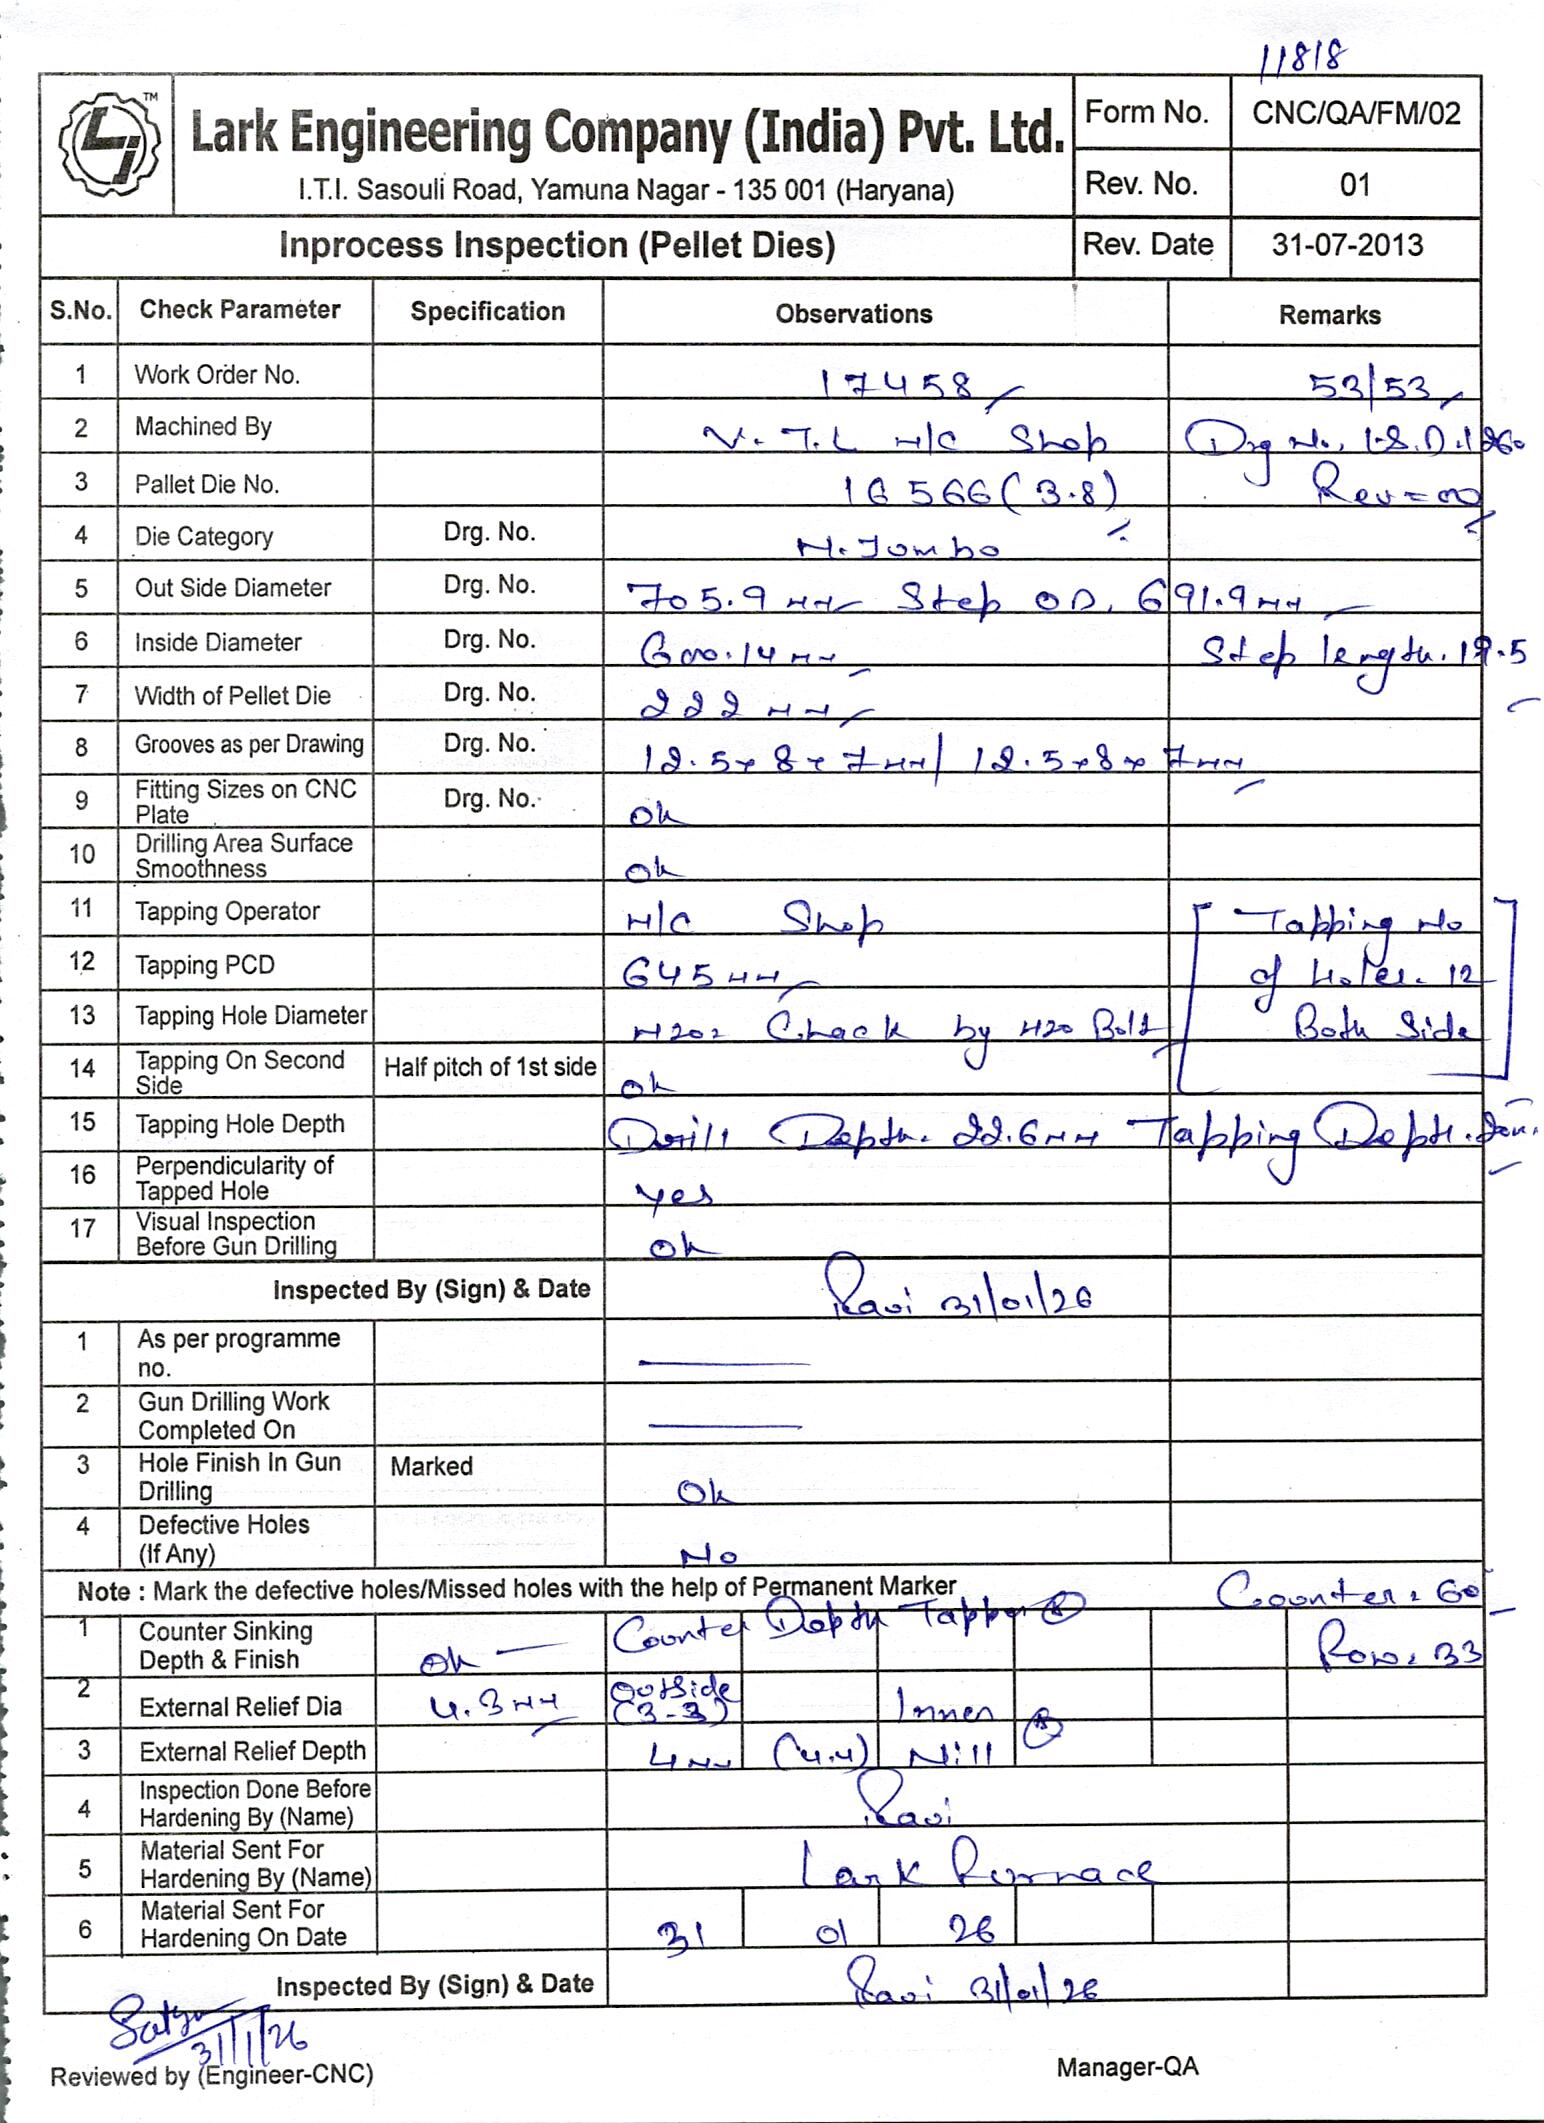 11818
LJ TM
Lark Engineering Company (India) Pvt. Ltd.
I.T.I. Sasouli Road, Yamuna Nagar - 135 001 (Haryana)
Form No. CNC/QA/FM/02
Rev. No. 01
Inprocess Inspection (Pellet Dies) Rev. Date 31-07-2013
S.No. Check Parameter Specification Observations Remarks
1 Work Order No. 17458 53/53
2 Machined By V.T.L M/C Shop Drg No. L.S.D.1260
3 Pallet Die No. 16566 (3.8) Rev=00
4 Die Category Drg. No. M.Jombo
5 Out Side Diameter Drg. No. 705.9 mm Step OD. 691.9 mm
6 Inside Diameter Drg. No. 600.14 mm Step length. 19.5
7 Width of Pellet Die Drg. No. 222 mm
8 Grooves as per Drawing Drg. No. 12.5x8x7mm/ 12.5x8x7mm
9 Fitting Sizes on CNC Plate Drg. No. Ok
10 Drilling Area Surface Smoothness Ok
11 Tapping Operator M/C Shop [Tapping No
12 Tapping PCD 645 mm of Holes. 12
13 Tapping Hole Diameter M20= Check by M20 Bolt Both Side]
14 Tapping On Second Side Half pitch of 1st side Ok
15 Tapping Hole Depth Drill Depth. 22.6mm Tapping Depth.
16 Perpendicularity of Tapped Hole Yes
17 Visual Inspection Before Gun Drilling Ok
Inspected By (Sign) & Date Ravi 31/01/26
1 As per programme no.
2 Gun Drilling Work Completed On
3 Hole Finish In Gun Drilling Marked Ok
4 Defective Holes (If Any) No
Note : Mark the defective holes/Missed holes with the help of Permanent Marker Counter = 60
1 Counter Sinking Depth & Finish Ok Counter Depth Tapper Row = 33
2 External Relief Dia 4.3mm Outside (3-3) Inner
3 External Relief Depth 4mm (4.4) Nill
4 Inspection Done Before Hardening By (Name) Ravi
5 Material Sent For Hardening By (Name) Lark Furnace
6 Material Sent For Hardening On Date 31 01 26
Inspected By (Sign) & Date Ravi 31/01/26
31/1/26
Reviewed by (Engineer-CNC) Manager-QA